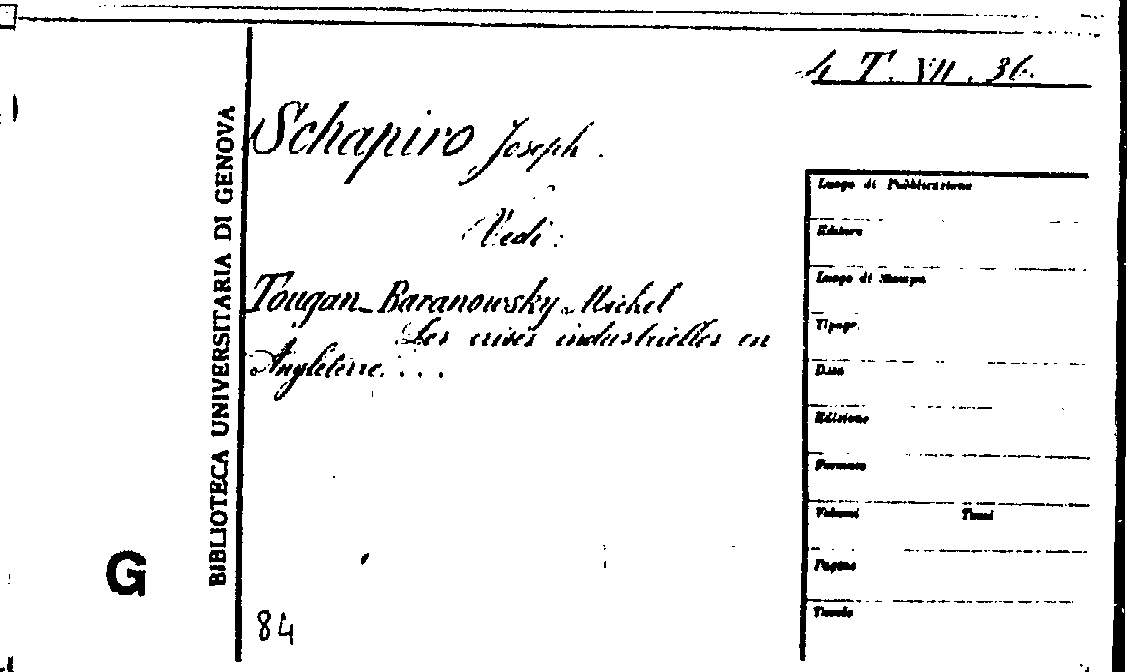 4 T. VII. 36.
Schapiro Joseph.
Vedi:
Tougan-Baranowsky Michel
Les crises industrielles en
Angleterre. . . .
BIBLIOTECA UNIVERSITARIA DI GENOVA
G
84
Luogo di Pubblicazione
Editore
Luogo di Stampa
Tipogr.
Data
Edizione
Formato
Volumi Tomi
Pagine
Tavole